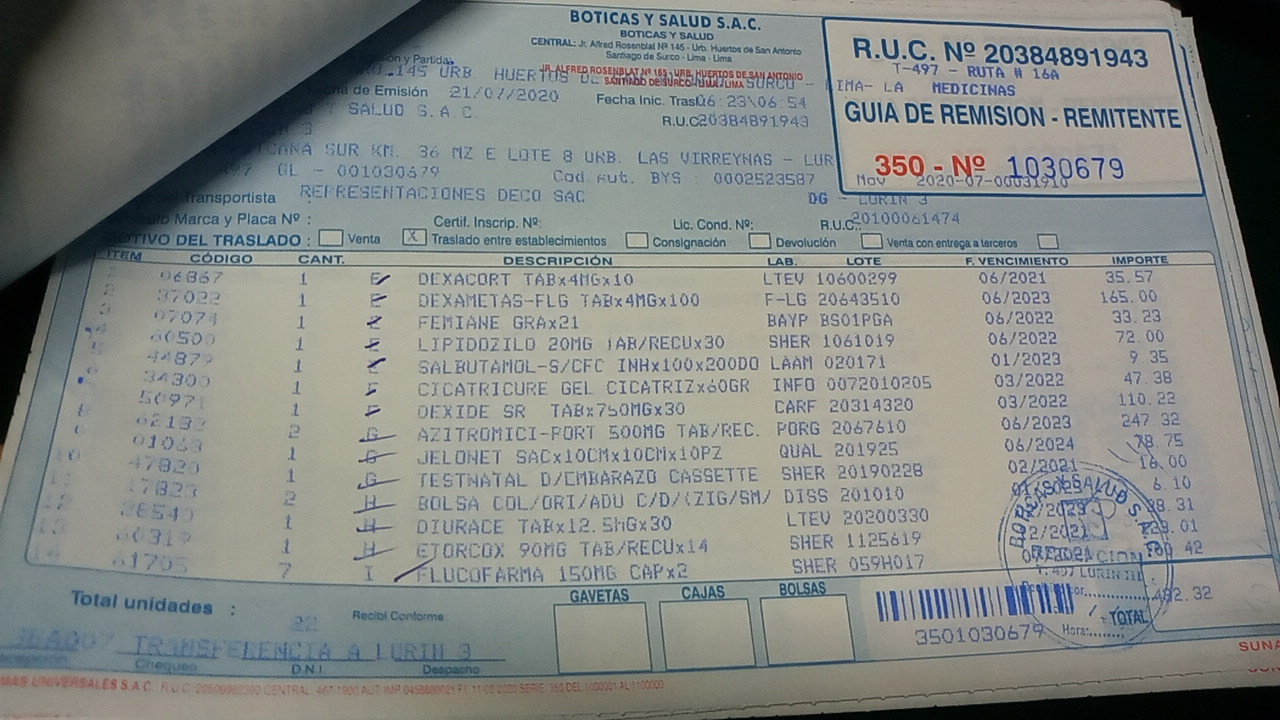 BOTICAS Y SALUD S.A.C.
BOTICAS Y SALUD
CENTRAL: Jr. Alfred Rosenblat Nº 145 - Urb. Huertos de San Antonio
Santiago de Surco - Lima - Lima
R.U.C. Nº 20384891943
T-497 - RUTA # 16A
MEDICINAS
GUIA DE REMISION - REMITENTE
350 - Nº 1030679
Mov : 2020-07-00031910
y Partida
145 URB HUERTOS DE SURCO - LIMA- LA
JR. ALFRED ROSENBLAT Nº 165 - URB. HUERTOS DE SAN ANTONIO
SANTIAGO DE SURCO - LIMA - LIMA
de Emisión 21/07/2020 Fecha Inic. Trasl 06:23\06:54
Y SALUD S.A.C. R.U.C. 20384891943
SUR KM. 36 MZ E LOTE 8 URB. LAS VIRREYNAS - LUR
GL - 001030679 Cod Aut. BYS : 0002523587
DG - LURIN 3
Transportista REPRESENTACIONES DECO SAC
R.U.C.: 20100061474
Marca y Placa Nº : Certif. Inscrip. Nº: Lic. Cond. Nº:
MOTIVO DEL TRASLADO : Venta X Traslado entre establecimientos Consignación Devolución Venta con entrega a terceros
ITEM CÓDIGO CANT. DESCRIPCIÓN LAB. LOTE F. VENCIMIENTO IMPORTE
06867 1 E DEXACORT TABx4MGx10 LTEV 10600299 06/2021 35.57
37022 1 E DEXAMETAS-FLG TABx4MGx100 F-LG 20643510 06/2023 165.00
07074 1 FEMIANE GRAx21 BAYP BS01PGA 06/2022 33.23
60500 1 LIPIDOZILO 20MG TAB/RECUx30 SHER 1061019 06/2022 72.00
44877 1 SALBUTAMOL-S/CFC INHx100x200DO LAAM 020171 01/2023 9.35
34300 1 CICATRICURE GEL CICATRIZx60GR INFO 0072010205 03/2022 47.38
50971 1 DEXIDE SR TABx750MGx30 CARF 20314320 03/2022 110.22
62132 2 G AZITROMICI-PORT 500MG TAB/REC. PORG 2067610 06/2023 247.32
01063 1 G JELONET SACx10CMx10CMx10PZ QUAL 201925 06/2024 78.75
47820 1 G TESTNATAL D/EMBARAZO CASSETTE SHER 20190228 02/2021 16.00
17823 2 H BOLSA COL/ORI/ADU C/D/(ZIG/SM/ DISS 201010 6.10
28540 1 H DIURACE TABx12.5MGx30 LTEV 20200330 38.31
60319 1 H ETORCOX 90MG TAB/RECUx14 SHER 1125619
61705 7 I FLUCOFARMA 150MG CAPx2 SHER 059H017
BOTICAS Y SALUD S.A.C.
T. 497 LURIN III
Hora:
Total unidades : 22 Recibí Conforme
GAVETAS CAJAS BOLSAS
3501030679
TOTAL
TRANSFERENCIA A LURIN 3
Chequeo D.N.I. Despacho
SUNA